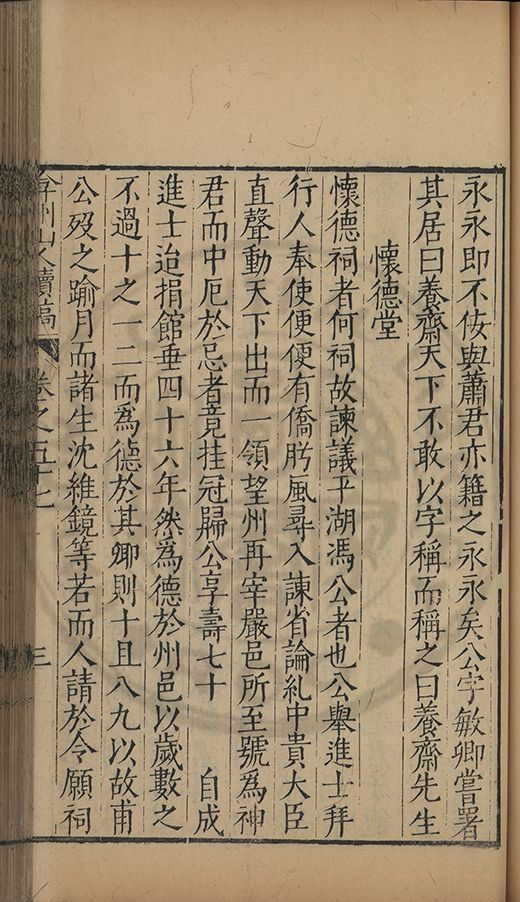 永永即不佞與蕭君亦籍之永永矣公字敏卿嘗署
其居曰養齋天下不敢以字稱而稱之曰養齋先生
懷德堂
懷德祠者何祠故諫議平湖馮公者也公舉進士拜
行人奉使便便有僑肹風尋入諫省論糺中貴大臣
直聲動天下出而一領望州再宰嚴邑所至號爲神
君而中厄於忌者竟挂冠歸公享壽七十 自成
進士迨捐館垂四十六年然爲德於州邑以歲數之
不過十之一二而爲德於其鄉則十且八九以故甫
公歿之踰月而諸生沈維鏡等若而人請於令願祠
弇州山人續稿 卷之五十七 三